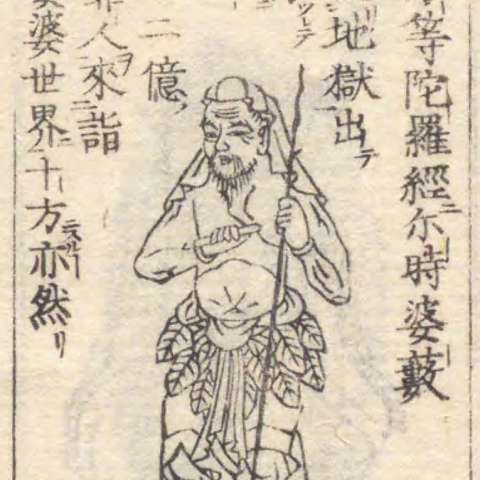 等陀羅經ニ尓時婆藪
地獄出テ
二億ノ
人ヲ來ニ詣
婆世界ニ十方亦然リ